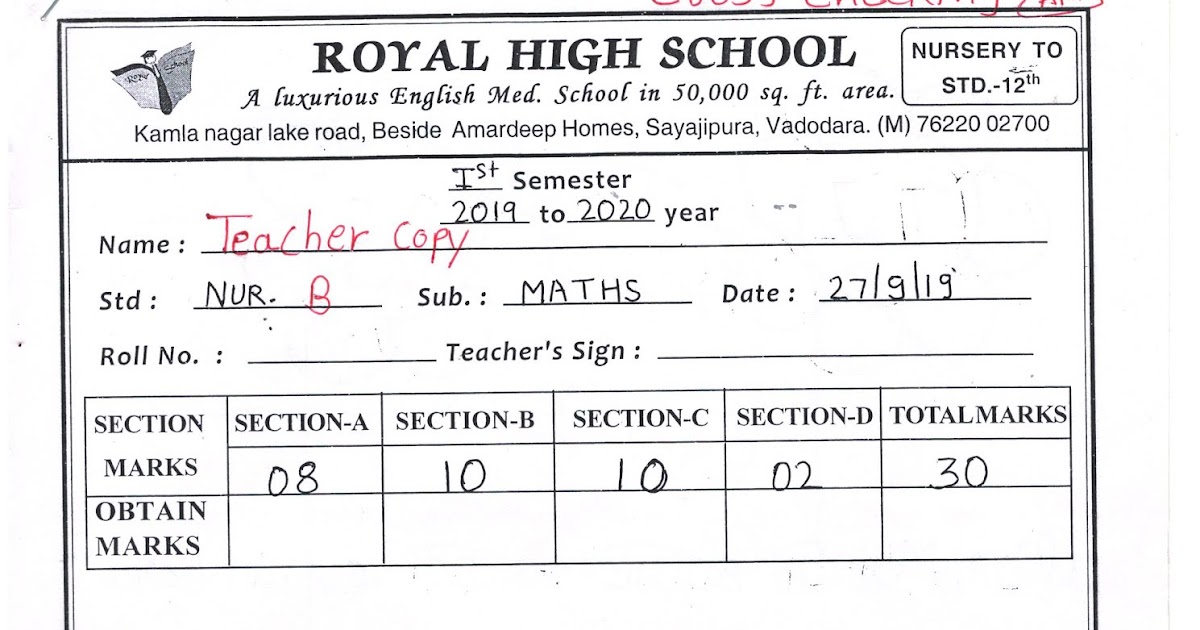 Cross Checking
Royal School
ROYAL HIGH SCHOOL
A luxurious English Med. School in 50,000 sq. ft. area.
NURSERY TO
STD.-12th
Kamla nagar lake road, Beside Amardeep Homes, Sayajipura, Vadodara. (M) 76220 02700
Ist Semester
2019 to 2020 year
Name : Teacher Copy
Std : NUR. B Sub. : MATHS Date : 27/9/19
Roll No. : Teacher's Sign :
SECTION SECTION-A SECTION-B SECTION-C SECTION-D TOTAL MARKS
MARKS 08 10 10 02 30
OBTAIN
MARKS